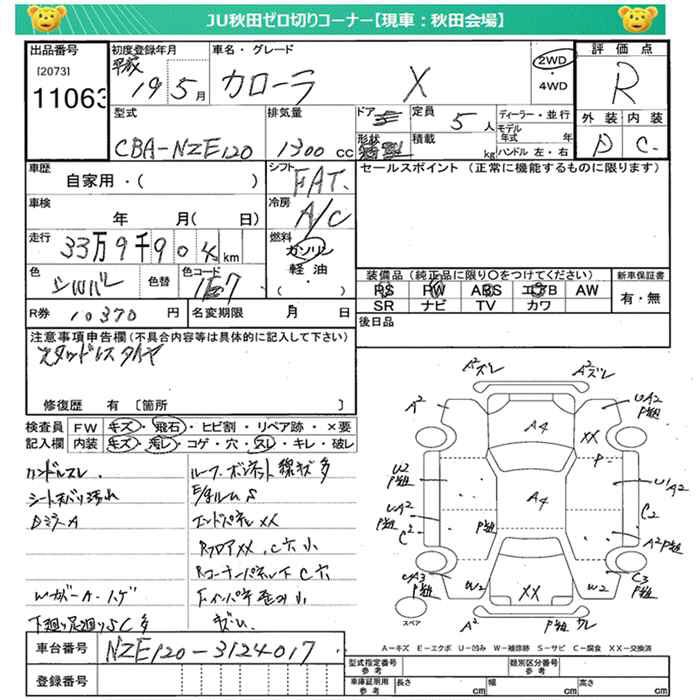 JU秋田ゼロ切りコーナー【現車：秋田会場】
出品番号
[2073]
11063
初度登録年月
平成
19 5月
車名・グレード
カローラ X
2WD
・
4WD
評価点
R
外装 内装
D C
型式
CBA-NZE120
排気量
1300 cc
ドア
形状
定員
5人
積載
kg
ディーラー・並行
モデル年式 年
ハンドル 左・右
車歴
自家用・( )
シフト
FAT.
セールスポイント（正常に機能するものに限ります）
車検
年 月( 日)
冷房
A/C
走行
33万9千904km
燃料
ガソリン
軽油
・( )
色
シルバー
色替
色コード
1E7
装備品（純正品に限り〇をつけてください）
PS PW ABS エアB AW
SR ナビ TV カワ
新車保証書
有・無
R券 10370円
名変期限 月 日
後日品
注意事項申告欄(不具合内容等は具体的に記入して下さい)
スタッドレスタイヤ
修復歴 有 [箇所 ]
検査員記入欄
FW キズ・飛石・ヒビ割・リペア跡・×要
内装 キズ・汚レ・コゲ・穴・スレ・キレ・破レ
ハンドルスレ
シート汚れ
ルーフ・ボンネット線キズ多
エンドパネルXX
RフロアXX、C穴小
RコーナーパネルC穴
下廻り足廻りSC多
A²ズレ
A²ズレ
A²
UA2
P粗
A4
XX
P
U2
P粗
UA2
P粗
C²
A4
P粗
U1A2
C2
A²P粗
UA3
P粗
W2
XX
W2
C3
P粗
A²
P粗
スペア
A＝キズ E＝エクボ U＝凹み W＝補修跡 S＝サビ C＝腐食 XX＝交換済
車台番号
NZE120-3124017
登録番号
型式指定番号
参考
類別区分番号
参考
車庫証明用
参考
長さ cm
幅 cm
高さ cm